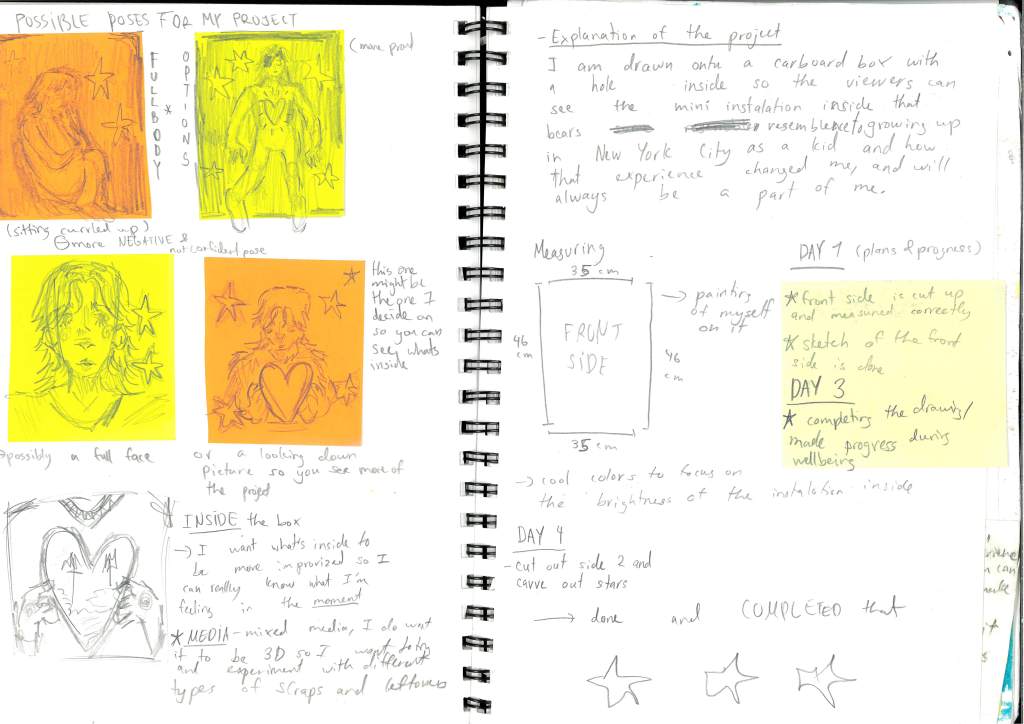 POSSIBLE POSES FOR MY PROJECT
FULLBODY
*
OPTIONS
(more proud
(sitting currled up)
more NEGATIVE &
not confident pose
*
this one
might be
the one I
decide on
so you can
see whats
inside
→possibly a full face
or a looking down
picture so you see more of
the project
INSIDE the box
→ I want what's inside to
be more improvized so I
can really know what I'm
feeling in the moment
* MEDIA - mixed media, I do want
it to be 3D so I want to try
and experiment with different
types of scraps and leftovers
- Explanation of the project
I am drawn onto a carboard box with
a hole inside so the viewers can
see the mini instalation inside that
bears resemblence to growing up
in New York City as a kid and how
that experience changed me, and will
always be a part of me.
Measuring
35 cm
46
cm
FRONT
SIDE
46
cm
35 cm
→ painting
of myself
on it
→ cool colors to focus on
the brightness of the instalation inside
DAY 1 (plans & progress)
* front side is cut up
and measured correctly
* sketch of the front
side is done
DAY 3
* completing the drawing/
made progress during
wellbeing
DAY 4
- cut out side 2 and
carve out stars
→ done and COMPLETED that